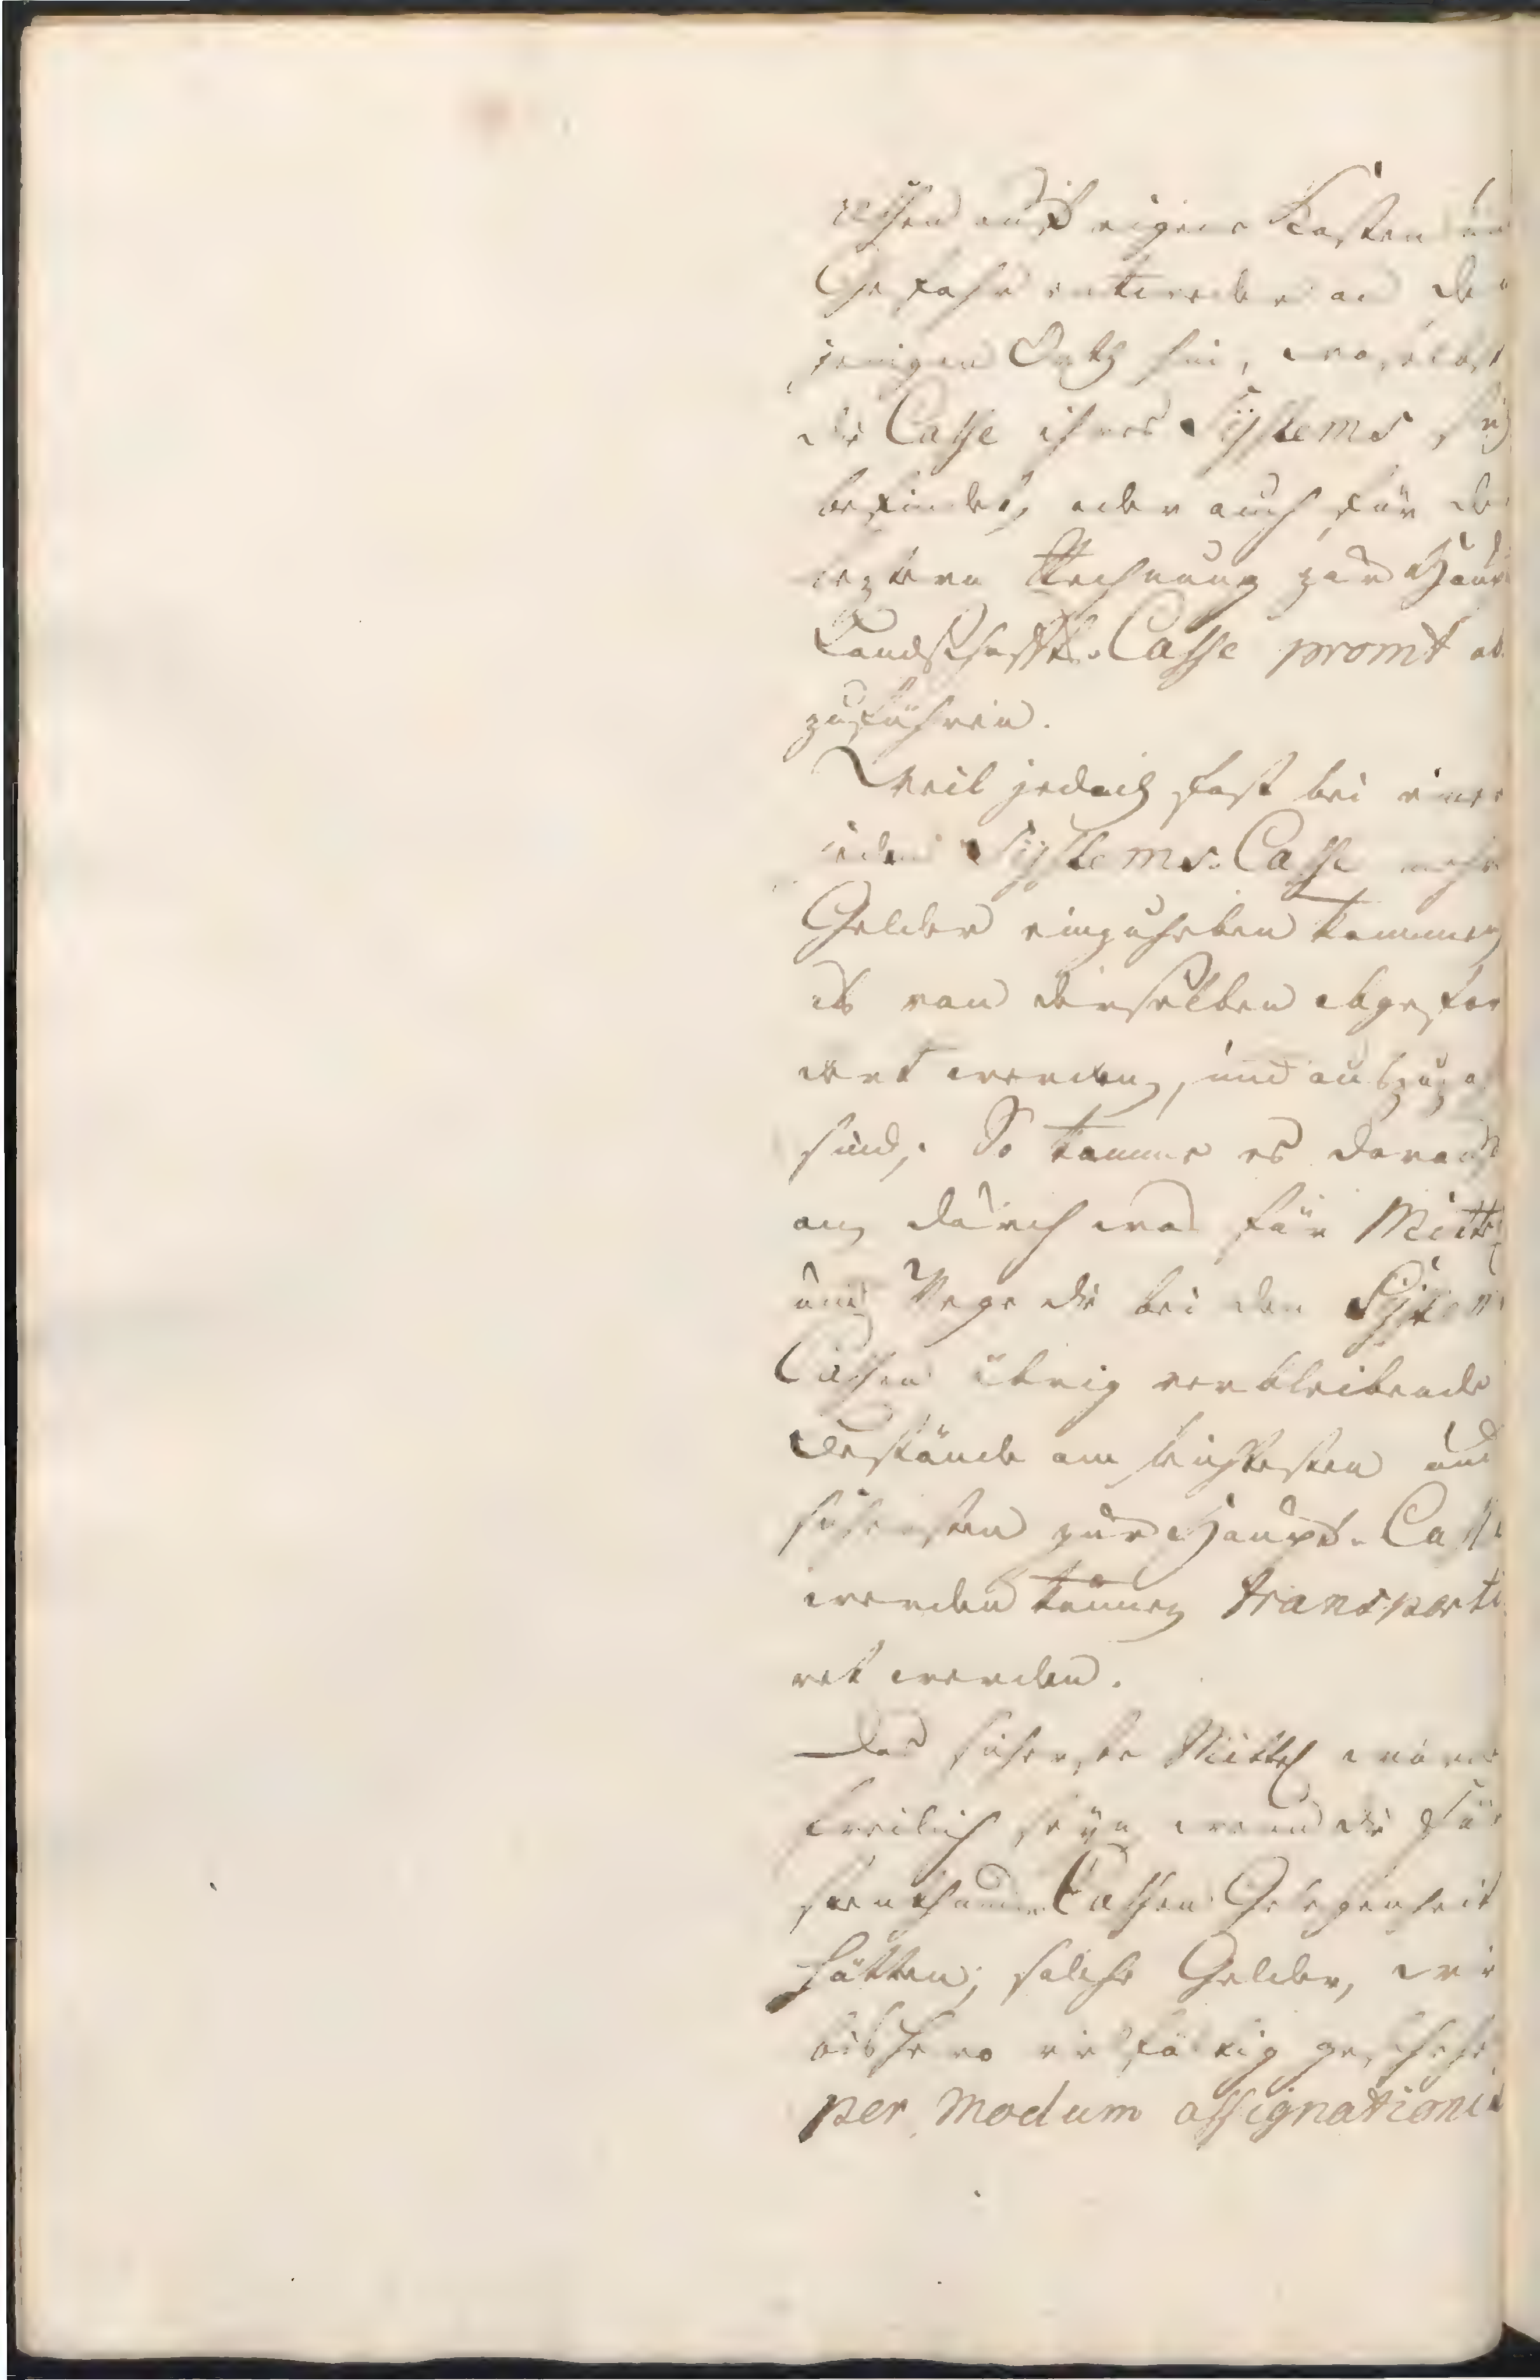 auf eigene Kosten und
Gefahr entweder an den
jenigen Orth hin, woselbst
die Casse ihres Systems sich
befindet, oder auch für der
leztern Rechnung zur Haupt
Landschaffts-Casse promt ab
zuführen.
Weil jedoch fast bei einer
jeden Systems-Casse mehr
Gelder einzuheben kommen
als von derselben abgefor
dert werden, und auszuza
sind; So komme es darauf
an, durch was für Mittel
und Wege die bei den System
Cassen übrig verbleibende
Bestände am leichtesten und
sichersten zur Haupt-Casse
werden können transporti
ret werden.
Das sicherste Mittel wäre
freilich seyn, wenn die Für
stenthums Cassen Gelegenheit
hätten, solche Gelder, wie
bishero vielfältig geschehen
per modum assignationis